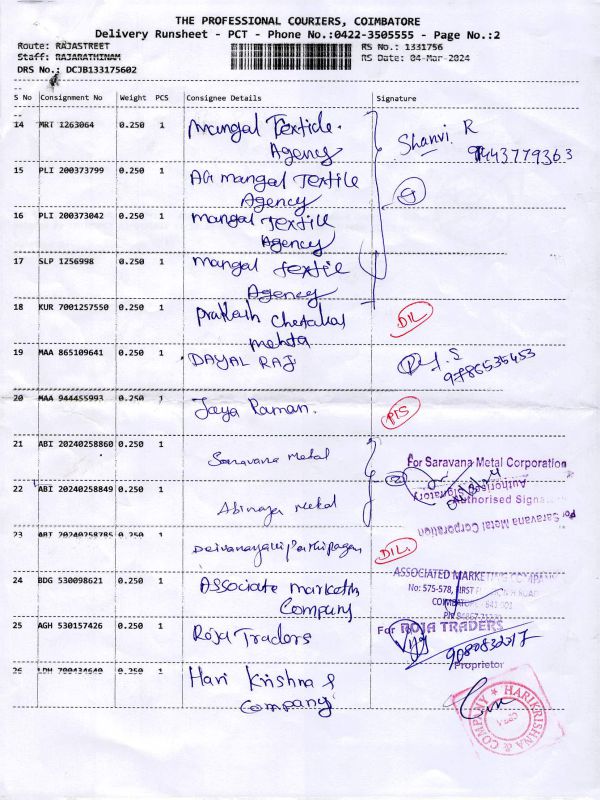 THE PROFESSIONAL COURIERS, COIMBATORE
Delivery Runsheet - PCT - Phone No.:0422-3505555 - Page No.:2
Route: RAJASTREET RS No.: 1331756
Staff: RAJARATHINAM RS Date: 04-Mar-2024
DRS No.: DCJB133175602
S No Consignment No Weight PCS Consignee Details Signature
14 MRT 1263064 0.250 1 Mangal Textile. Shanvi. R
Agency 9443779363
15 PLI 200373799 0.250 1 AG mangal Textile
Agency
16 PLI 200373042 0.250 1 mangal Textile
Agency
17 SLP 1256998 0.250 1 mangal textile
Agency
18 KUR 7001257550 0.250 1 prakash
mehta D/L
19 MAA 865109641 0.250 1 DAYAL RAJ
9786535453
20 MAA 944455993 0.250 1 Jaya Raman.
21 ABI 20240258860 0.250 1 Saravana metal For Saravana Metal Corporation
Authorised Signatory
22 ABI 20240258849 0.250 1 Abinaya metal Authorised
For Saravana Metal Corporation
23 ABI 20240258785 0.250 1 D/L
24 BDG 530098621 0.250 1 Associate marketin ASSOCIATED MARKETING COMPANY
Company No: 575-578, FIRST
25 AGH 530157426 0.250 1 Roja Traders For ROJA TRADERS
Proprietor
26 LDH 700434640 0.250 1 Hari Krishna &
Company HARIKRISHNA & COMPANY